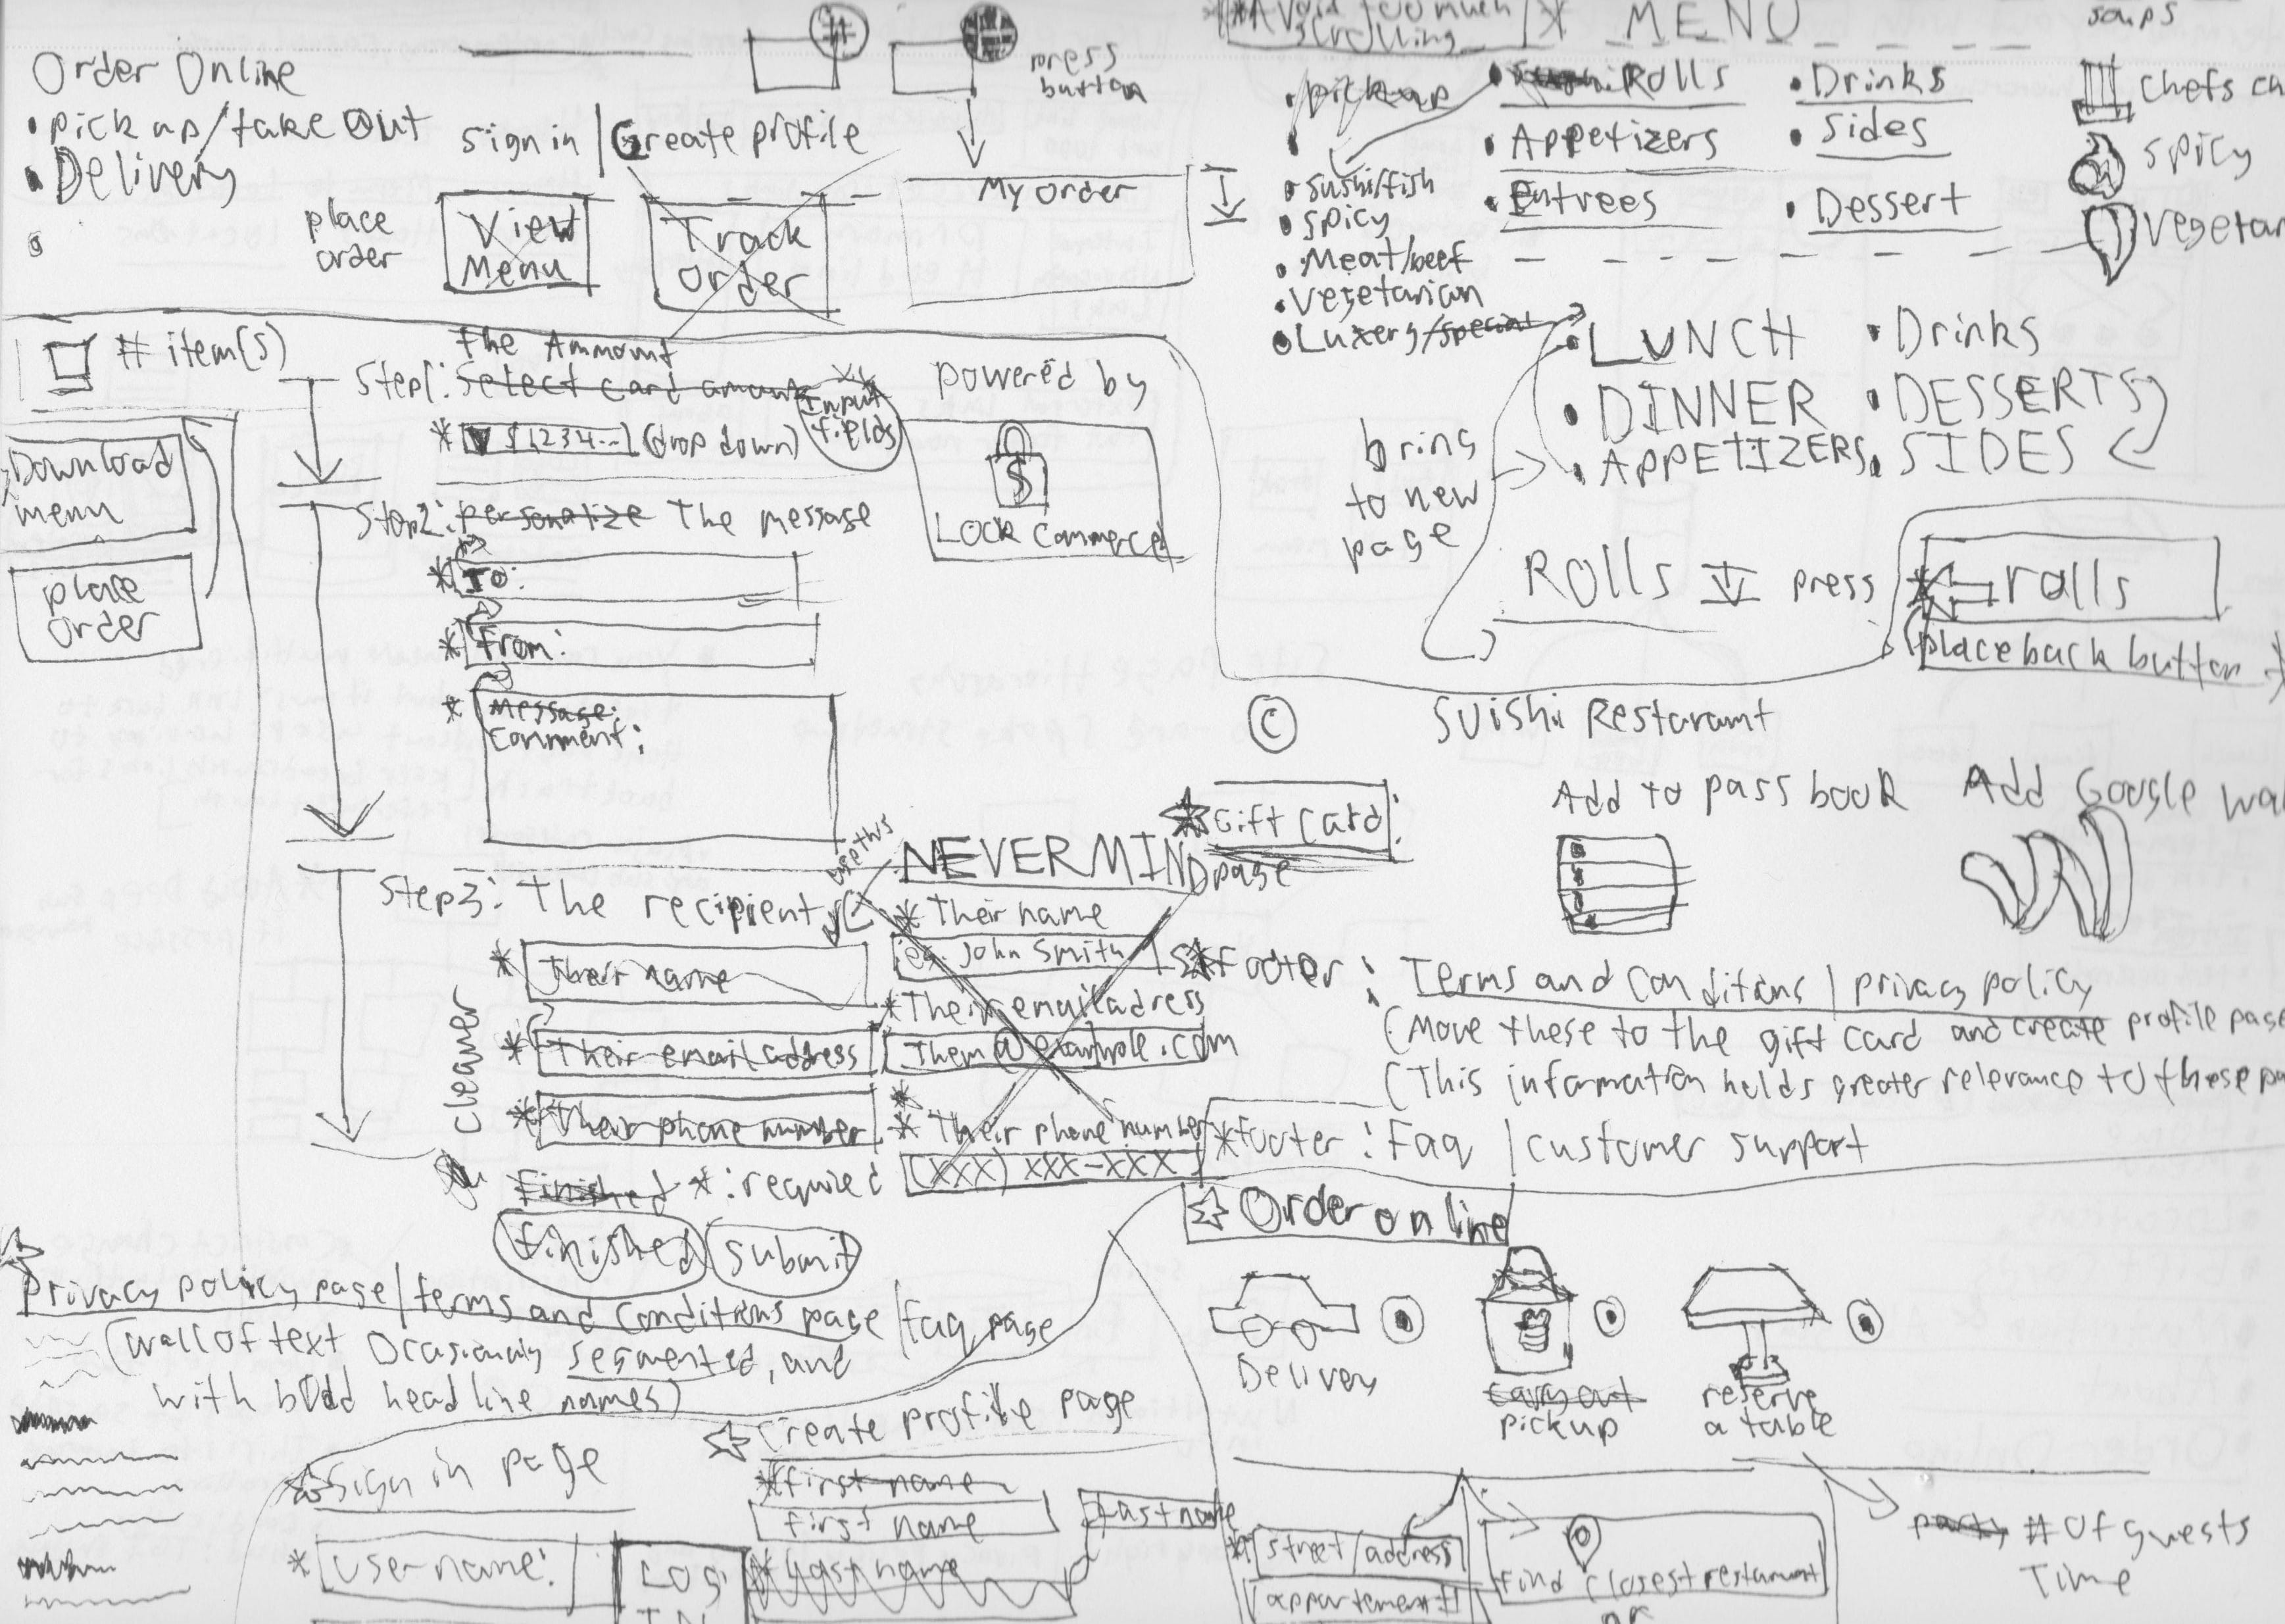 Order Online
• pick up/take Out
• Delivery
sign in | Create profile
place
order
View
Menu
Track
Order
#
press
button
My Order
scrolling
MENU
• pick up
• Rolls
• Appetizers
• Entrees
• Drinks
• Sides
• Dessert
soups
chefs ch
spicy
vegetar
• sushi/fish
• spicy
• Meat/beef
• vegetarian
• Luxery/special
• LUNCH
• DINNER
• APPETIZERS
• Drinks
• DESSERTS
• SIDES
bring
to new
page
ROlls
press
rolls
(place back button
# item(s)
Download
menu
place
order
The Ammount
Step1: Select card amount
Input
fields
* $1234... (drop down)
powered by
$
LOCK Commerce
Step2: personalize The message
* To:
* From:
* Message:
Comment:
Step3: The recipient
* Their name
* Their email address
* Their phone number
cleaner
Finished *: required
finished
submit
NEVERMIND
* Their name
eg. John Smith
* Their email adress
Them@example.com
* Their phone number
(XXX) XXX-XXX
© Suishi Restaraunt
* Gift Card:
page
Add to pass book
Add Google wa
* Footer: Terms and Conditions | privacy policy
(Move these to the gift card and create profile page
(This information holds greater relevance to these pa
* Footer: Faq | customer support
Order online
Delivery
carry out
pickup
reserve
a table
Privacy policy page/terms and conditions page/faq page
(wall of text Ocasionaly segmented, and
with bOld head line names)
Sign in page
* user name:
LOG
IN
Create profile page
* first name
first name
Last name
* Last name
* street/address
(appartement)
find closest restaraunt
OR
party # Of guests
Time